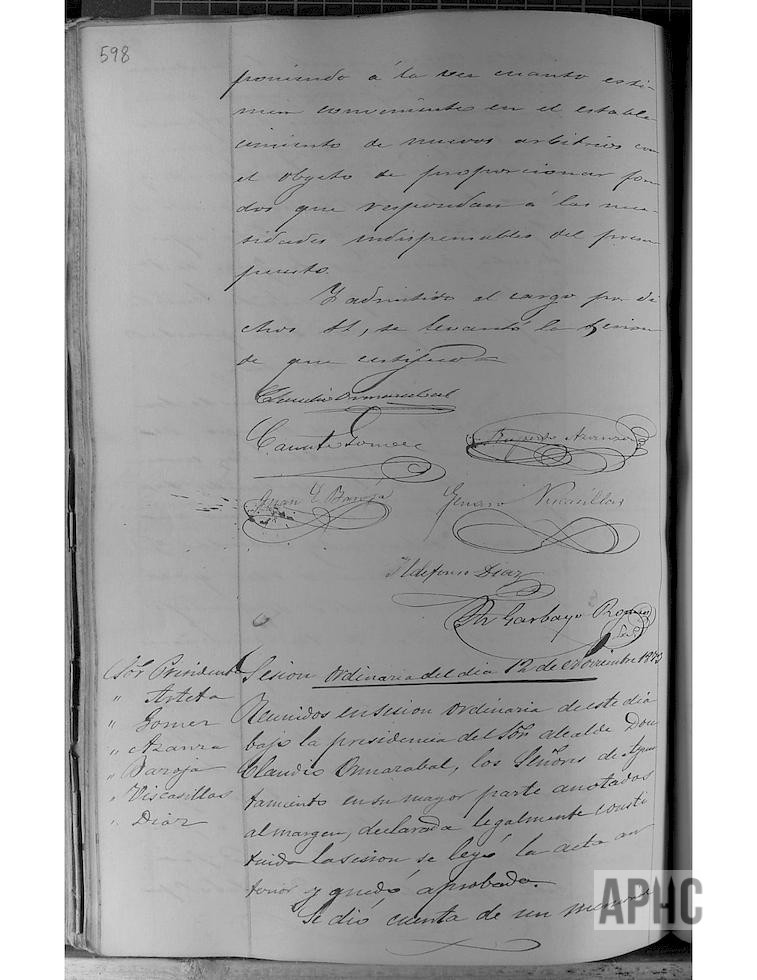 598
poniendo á la vez cuanto esti-
men conveniente en el estable
cimiento de nuevos arbitrios con
el objeto de proporcionar fon
dos que respondan á las nece-
sidades indispensables del presu
puesto.
Y admitido el cargo por di
chos SS, se levantó la sesion
de que certifico
Claudio Ormazabal
Canuto Gomez
Azanza
Juan E Baroja
Genaro Viscasillas
Ildefonso Diaz
Garbayo
Sor Presidente
" Arteta
" Gomez
" Azanza
" Baroja
" Viscasillas
" Diaz
Sesion ordinaria del dia 12 de Noviembre 1873
Reunidos en sesion ordinaria de este dia
bajo la presidencia del Sor alcalde Don
Claudio Ormazabal, los Señores de Ayun
tamiento en su mayor parte anotados
al margen, declarada legalmente consti
tuida la sesion se leyó la acta an
terior y quedó aprobada.
Se dió cuenta de un
APHC